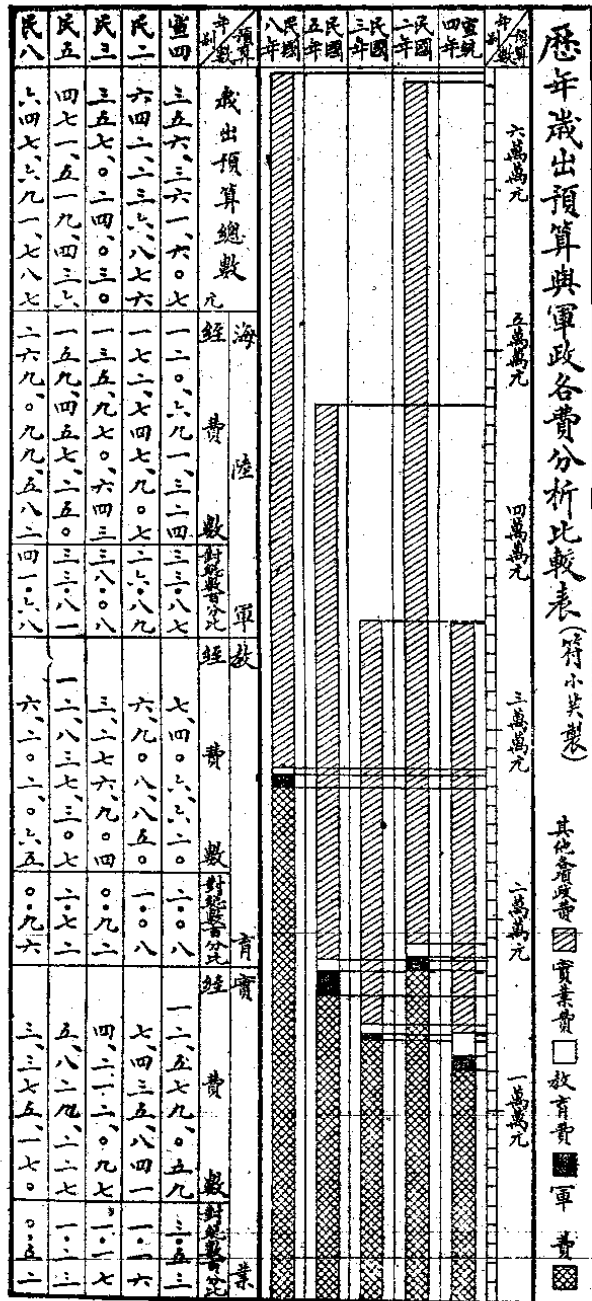 歷年歲出預算與軍政各費分析比較表(符小英製)
其他各項政費 實業費 教育費 軍費
預算數 年別 六萬萬元 五萬萬元 四萬萬元 三萬萬元 二萬萬元 一萬萬元
宣統四年
民國二年
民國三年
民國五年
民國八年
海陸軍 教育 實業
預算數 年別 歲出預算總數元 經費數 對總數百分比 經費數 對總數百分比 經費數 對總數百分比
宣四 三五六、三六一、六〇七 一二〇、六九一、三二四 三三·八七 七、四〇六、六二〇 二·〇八 一二、五七九、〇五九 三·五三
民二 六四二、二三六、八七六 一七二、七四七、九〇七 二六·八九 六、九〇八、八五〇 一·〇八 七、四三五、八四一 一·一六
民三 三五七、〇二四、〇三〇 一三五、九七〇、六四三 三八·〇八 三、二七六、九〇四 〇·九二 四、二一二、〇九七 一·一七
民五 四七一、五一九、四三六 一五九、四五七、二五〇 三三·八一 一二、八三七、三〇七 二·七二 五、八二九、二二七 一·二三
民八 六四七、六九一、七八七 二六九、〇九九、五八二 四一·六八 六、二〇二、〇六五 〇·九六 三、三七五、一七〇 〇·五二